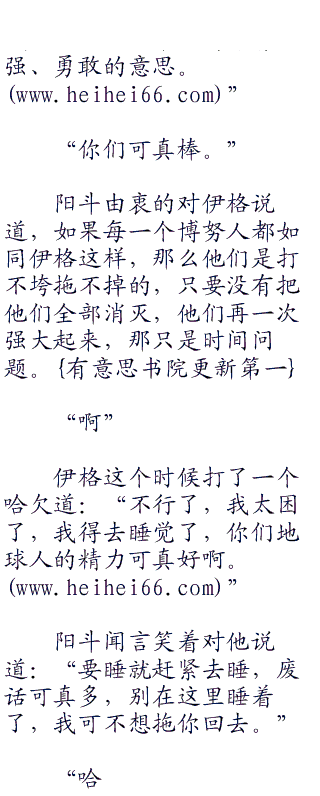 强、勇敢的意思。
(www.heihei66.com)”
“你们可真棒。”
阳斗由衷的对伊格说
道，如果每一个博努人都如
同伊格这样，那么他们是打
不垮拖不掉的，只要没有把
他们全部消灭，他们再一次
强大起来，那只是时间问
题。{有意思书院更新第一}
“啊”
伊格这个时候打了一个
哈欠道：“不行了，我太困
了，我得去睡觉了，你们地
球人的精力可真好啊。
(www.heihei66.com)”
阳斗闻言笑着对他说
道：“要睡就赶紧去睡，废
话可真多，别在这里睡着
了，我可不想拖你回去。”
“哈